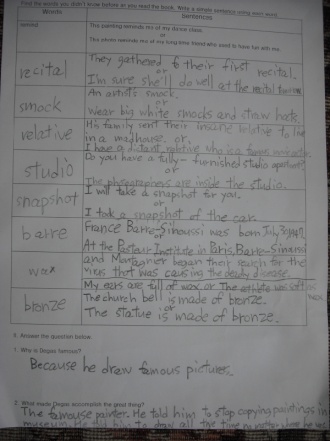 Find the words you didn't know before or you read the book. Write a simple sentence using every word.
Words Sentences
remind This painting reminds me of my dance class.
or
This photo reminds me of my long time friend who used to have fun with me.
recital They gathered to their first recital.
or
I'm sure she'll do well at the recital
smock An artist's smock.
or
Wear big white smocks and straw hats.
relative His family sent their insane relative to live
in a madhouse. or
I have a distant relative who is a famous
studio Do you have a fully-furnished studio apartment?
or
The photographers are inside the studio.
snapshot I will take a snapshot for you.
or
I took a snapshot of the car.
barre France Barre-Sinoussi was born July 30
or
At the Pasteur Institute in Paris, Barre-Sinoussi
and Montagnier began their search for the
virus that was causing the deadly disease.
wax My ears are full of wax. or The
bronze The church bell is made of bronze.
or
The statue is made of bronze.
II. Answer the question below.
1. Why is Degas famous?
Because he draw famous pictures.
2. What made Degas accomplish the great thing?
The famouse painter. He told him to stop copying paintings in
museum. He told him to draw all the time no matter where he